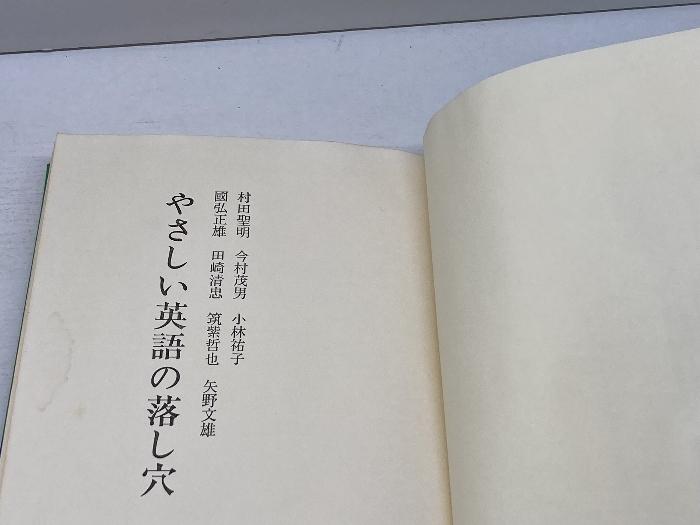 村田聖明 今村茂男 小林祐子
國弘正雄 田崎清忠 筑紫哲也 矢野文雄
やさしい英語の落し穴